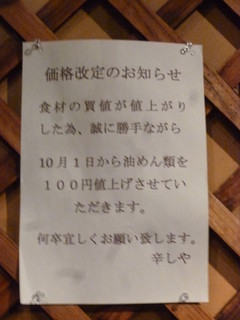 価格改定のお知らせ
食材の買値が値上がり
した為、誠に勝手ながら
10月1日から油めん類を
100円値上げさせてい
ただきます。
何卒宜しくお願い致します。
辛しや